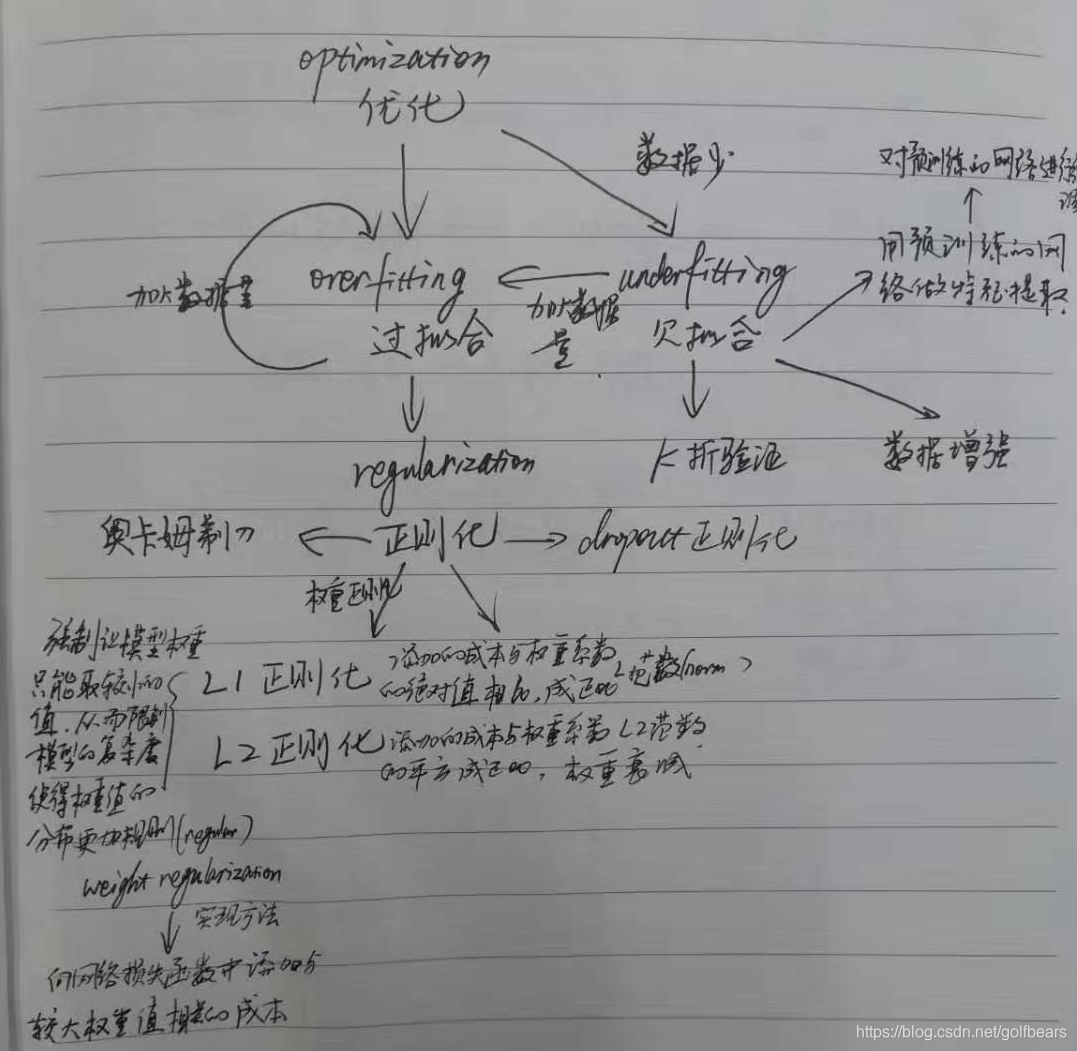 optimization
优化
数据少
对预训练的网络进行
用预训练的网
络做特征提取
overfitting
underfitting
加大数据量
加大数据
量
过拟合
欠拟合
regularization
K折验证
数据增强
奥卡姆剃刀
正则化
dropout正则化
权重正则化
强制让模型权重
只能取较小的
值,从而限制
模型的复杂度
使得权重值的
分布更加规则(regular)
L1正则化
添加的成本与权重系数
的绝对值相 成正 范数(norm)
L2正则化
添加的成本与权重系数L2范数
的平方成正 ,权重衰减
weight regularization
实现方法
向网络损失函数中添加与
较大权重值相关的成本
https://blog.csdn.net/golfbears